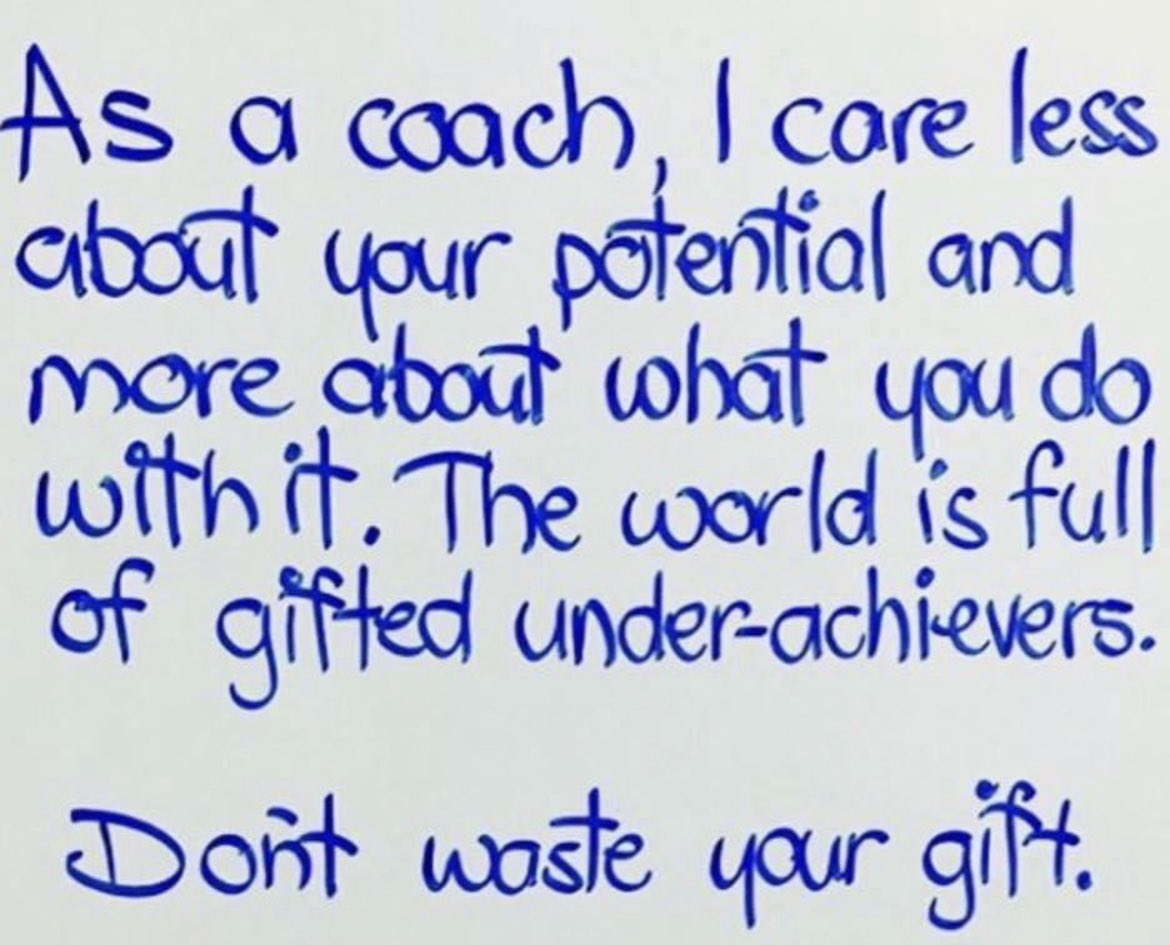 As a coach, I care less
about your potential and
more about what you do
with it. The world is full
of gifted under-achievers.
Don't waste your gift.